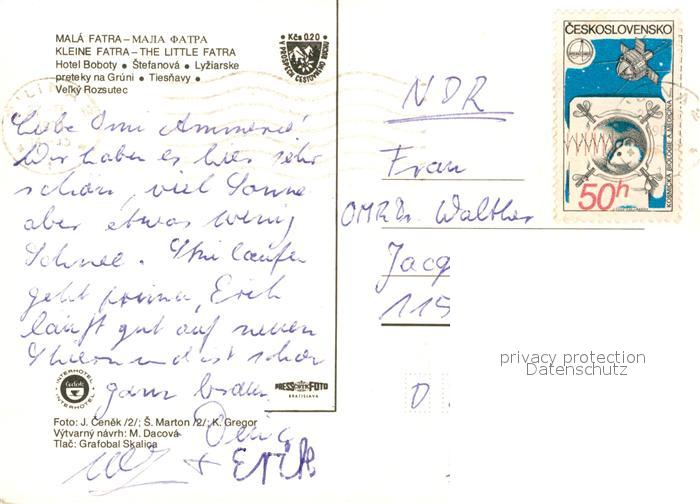 MALÁ FATRA – МАЛА ФАТРА
KLEINE FATRA – THE LITTLE FATRA
Hotel Boboty • Štefanová • Lyžiarske
preteky na Grúni • Tiesňavy •
Veľký Rozsutec
Kčs 0.20
V PROSPECH CESTOVNÉHO RUCHU
ČESKOSLOVENSKO
KOSMICKÁ BIOLOGIE A MEDICÍNA
50h
Liebe Omi
Wir haben es hier sehr
schön, viel Sonne
aber etwas wenig
Schnee. Ski laufen
geht prima, Erik
läuft gut auf neuen
Skiern und ist schon
ganz braun
+ Erik
NDR
Frau
OMR Dr. Walther
Jacq
115
D
INTERHOTEL
Čedok
INTERHOTEL
PRESSFOTO
BRATISLAVA
Foto: J. Čeněk /2/; Š. Marton /2/; K. Gregor
Výtvarný návrh: M. Dacová
Tlač: Grafobal Skalica
privacy protection
Datenschutz